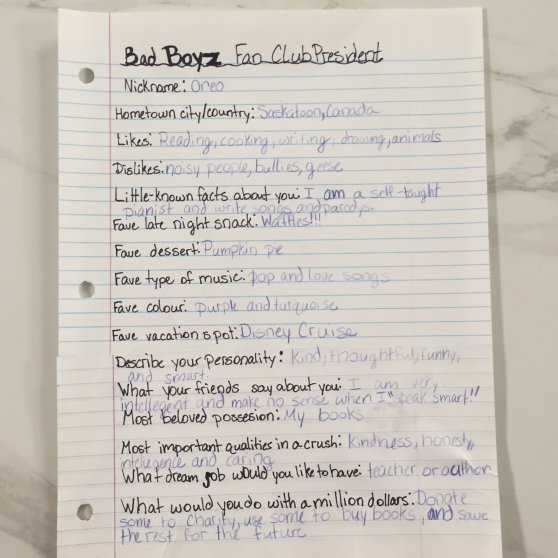 Bad Boyz Fan Club President
Nickname: Oreo
Hometown city/country: Saskatoon, Canada
Likes: Reading, cooking, writing, drawing, animals
Dislikes: noisy people, bullies, geese
Little-known facts about you: I am a self-taught
pianist and write songs and parodys.
Fave late night snack: Waffles!!!
Fave dessert: Pumpkin pie
Fave type of music: pop and love songs
Fave colour: purple and turquoise
Fave vacation spot: Disney Cruise
Describe your personality: Kind, thoughtful, funny,
and smart.
What your friends say about you: I am very
intellegent and make no sense when I "speak smart!"
Most beloved possesion: My books
Most important qualities in a crush: Kindness, honesty,
intelugence and caring
What dream job would you like to have: teacher or author
What would you do with a million dollars: Donate
some to charity, use some to buy books, and save
the rest for the future